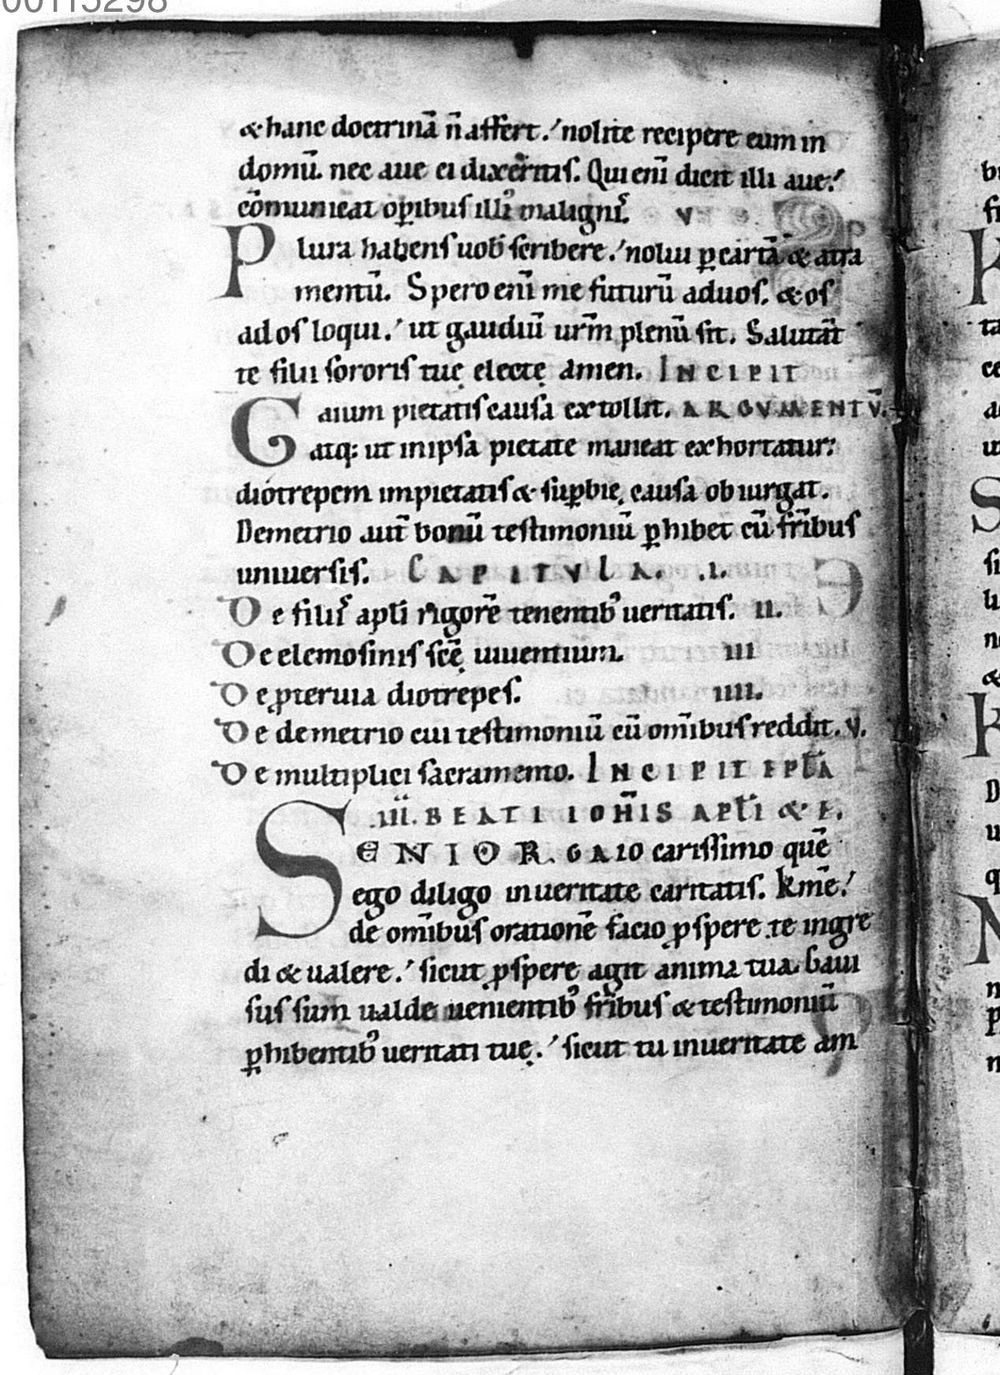 00115298
& hanc doctrinā n̄ affert. nolite recipere eum in
domū. nec aue ei dixeritis. Qui eni dicit illi aue.
cōmunicat oꝑibus illiꝰ malignis. V
Plura habens uob̄ scribere. nolui ꝑ cartā & atra
mentū. Spero eni me futurū ad uos. & os
ad os loqui. ut gaudiū urm̄ plenū sit. Salutāt
te filii sororis tuę electę amen. INCIPIT
Gaium pietatis causa extollit. ARGUMENTV̄.
atq; ut in ipsa pietate maneat exhortatur.
diotrepem impietatis & suꝑbię causa obiurgat.
Demetrio aut̄ bonū testimoniū ꝑhibet cū fr̄ibus
uniuersis. CAPITVLA. .I.
De filiis apl̄i rigorē tenentibꝰ ueritatis. II.
De elemosinis sc̄ę uiuentium. III
De ꝓteruia diotrepes. IIII.
De demetrio cui testimoniū cū om̄ibus reddit. V.
De multiplici sacramento. INCIPIT EPL̄A
.III. BEATI IOH̄IS APL̄I & E.
SENIOR. GAIO carissimo quē
ego diligo in ueritate caritatis. Km̄e.
de om̄ibus orationē facio ꝓspere te ingre
di & ualere. sicut ꝓspere agit anima tua. Gaui
sus sum ualde uenientibꝰ fr̄ibus & testimoniū
ꝑhibentibꝰ ueritati tuę. sicut tu in ueritate am